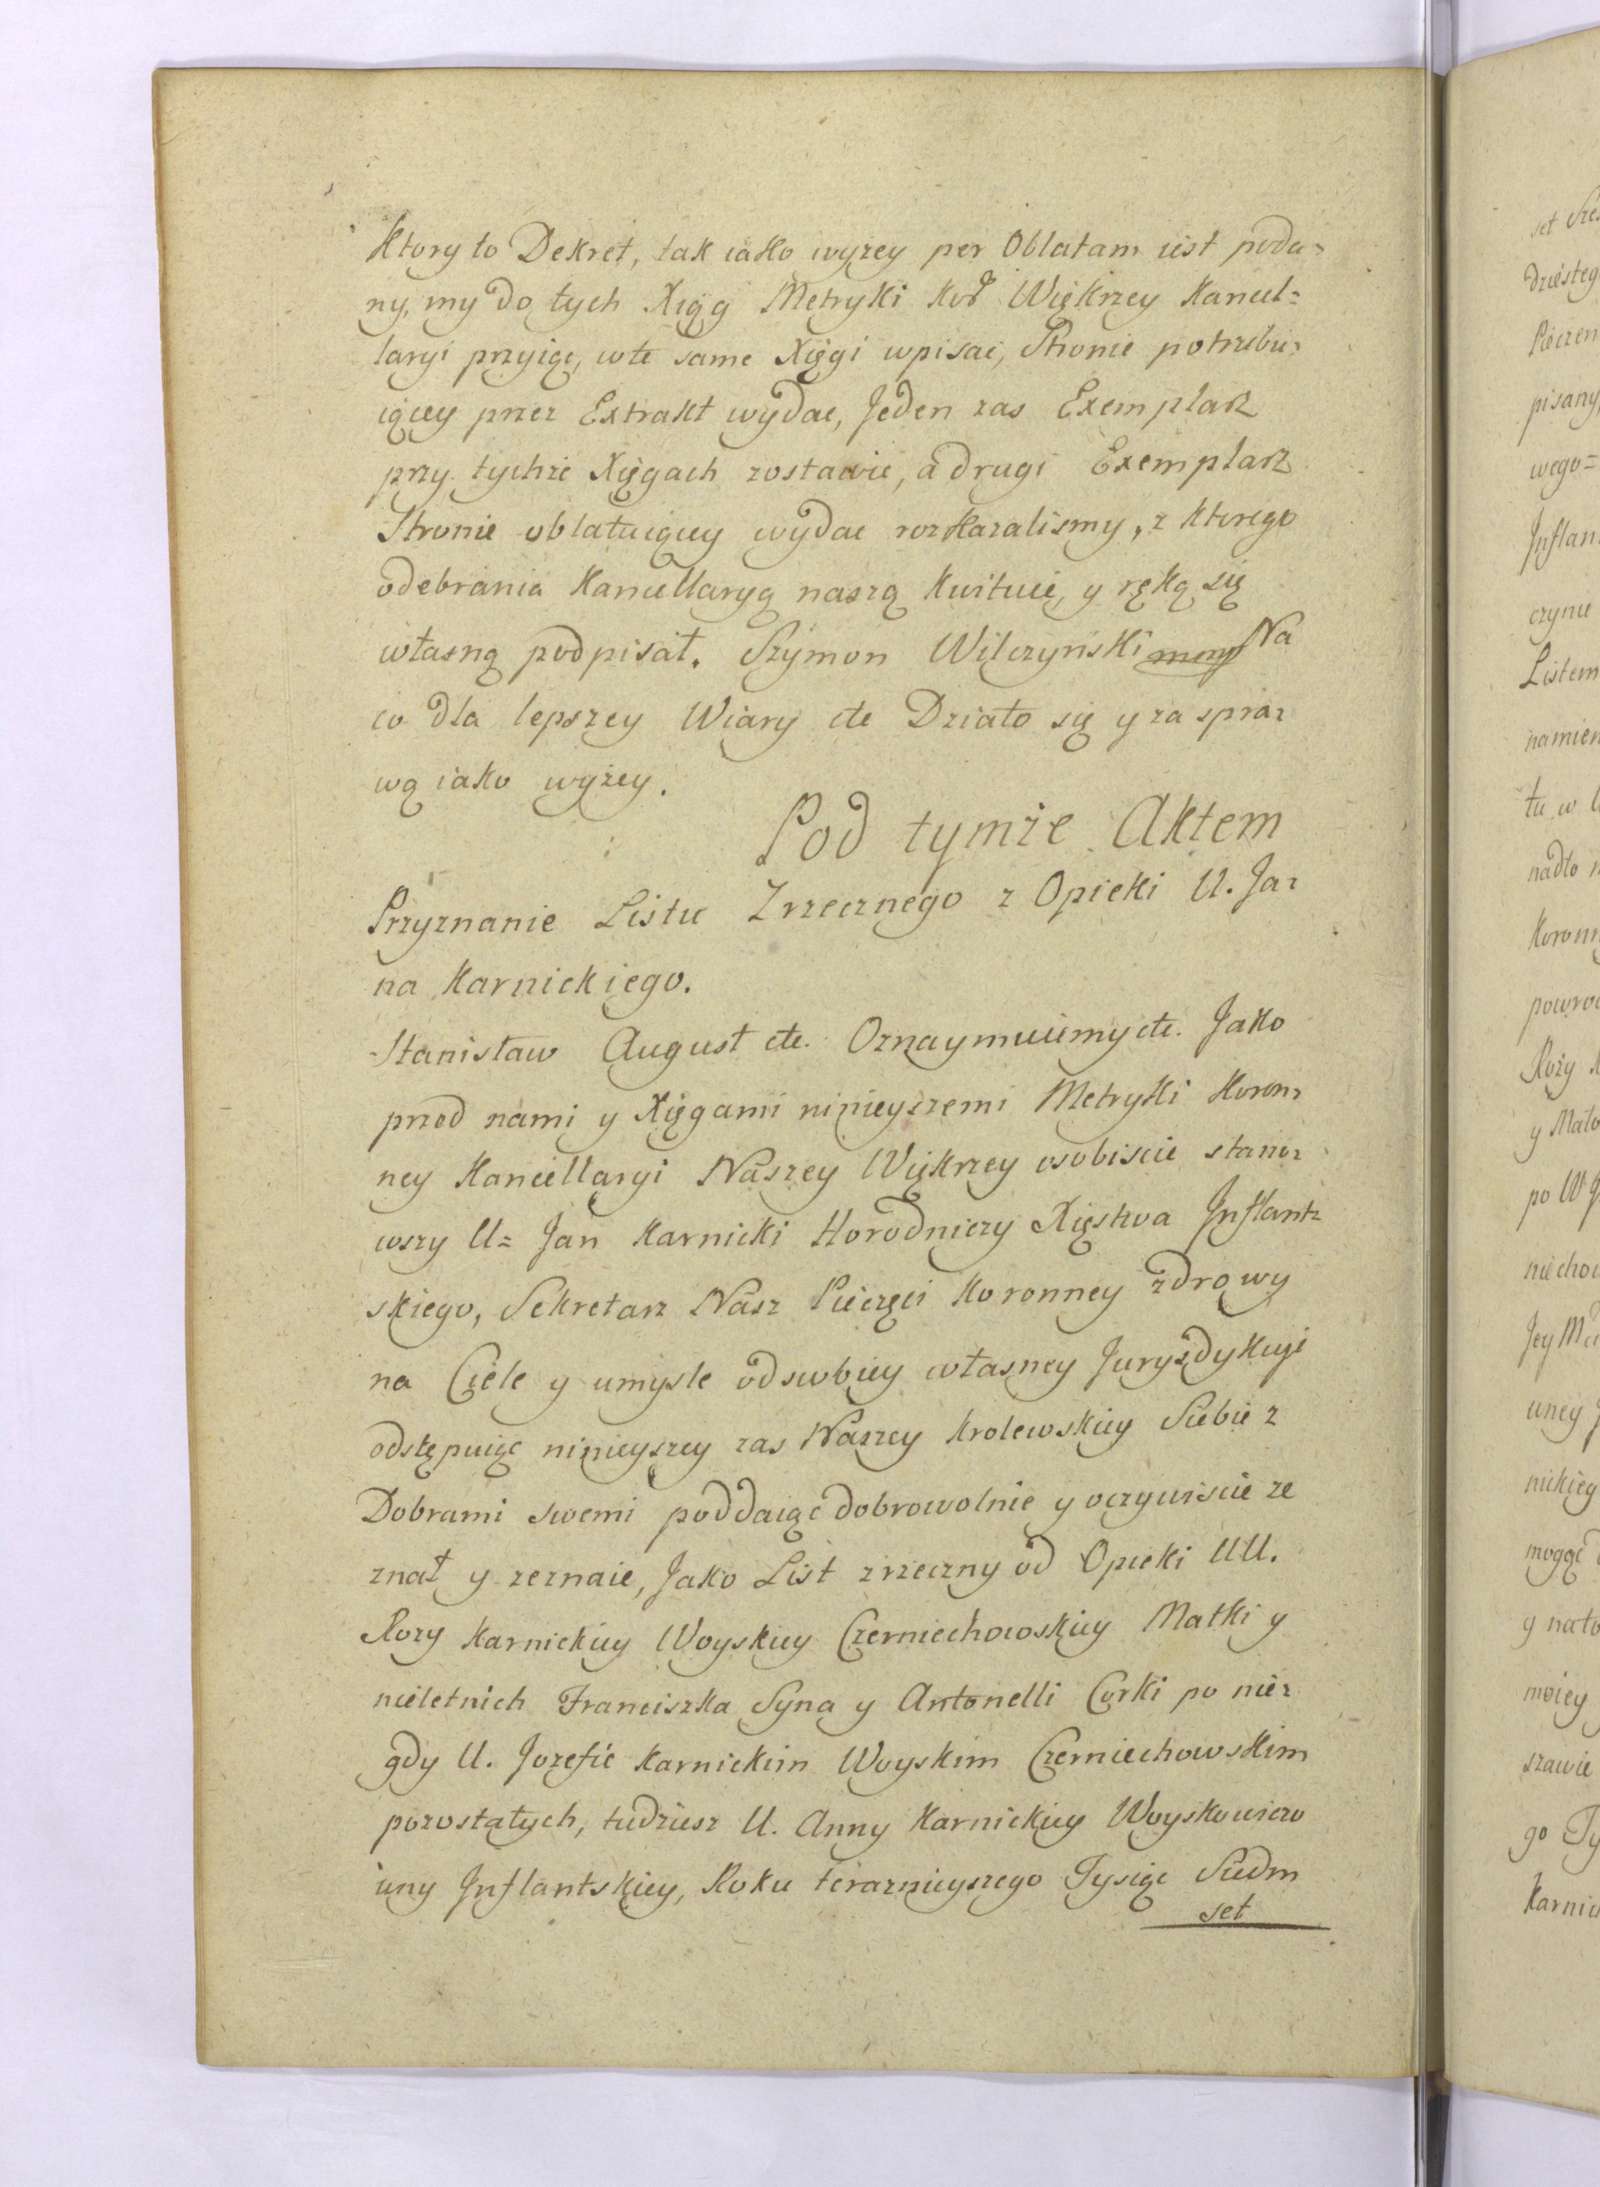 Ktory to Dekret, tak iako wyzey per Oblatam iest poda=
ny, my do tych Xiąg Metryki Kor Większey Kancel=
laryi przyiąc, w te same Xięgi wpisac, Stronie potrzebu=
iącey przez Extrakt wydac, Jeden zas Exemplarz
przy tychże Xięgach zostawic, a drugi Exemplarz
Stronie oblatuiącey wydac rozkazalismy, z ktorego
odebrania Kancellaryą naszą kwituie, y ręką się
własną podpisał. Szymon Wilczyński mmp Na
co dla lepszey Wiary etc Działo się y za spra=
wą iako wyżey.
Pod tymże Aktem
Przyznanie Listu Zrzecznego z Opieki U. Ja=
na Karnickiego.
Stanisław August etc. Oznaymuiemy etc. Jako
przed nami y Xięgami ninieyszemi Metryki Koron=
ney Kancellaryi Naszey Większey osobiscie stano=
wszy U= Jan Karnicki Horodniczy Xięstwa Inflant=
skiego, Sekretarz Nasz Pieczęci Koronney zdrowy
na Ciele y umysle od swoiey własney Juryzdykcyi
odstępuiąc ninieyszey zas Naszey Krolewskiey Siebie z
Dobrami swemi poddaiąc dobrowolnie y oczywiscie ze
znał y zeznaie, Jako List zrzeczny od Opieki UU.
Rozy Karnickiey Woyskiey Czerniechowskiey Matki y
nieletnich Franciszka Syna y Antonelli Corki po nie=
gdy U. Jozefie Karnickim Woyskim Czerniechowskim
pozostałych, tudziesz U. Anny Karnickiey Woyskowiczo
wny Inflantskiey, Roku teraznieyszego Tysiąc Siedm
set